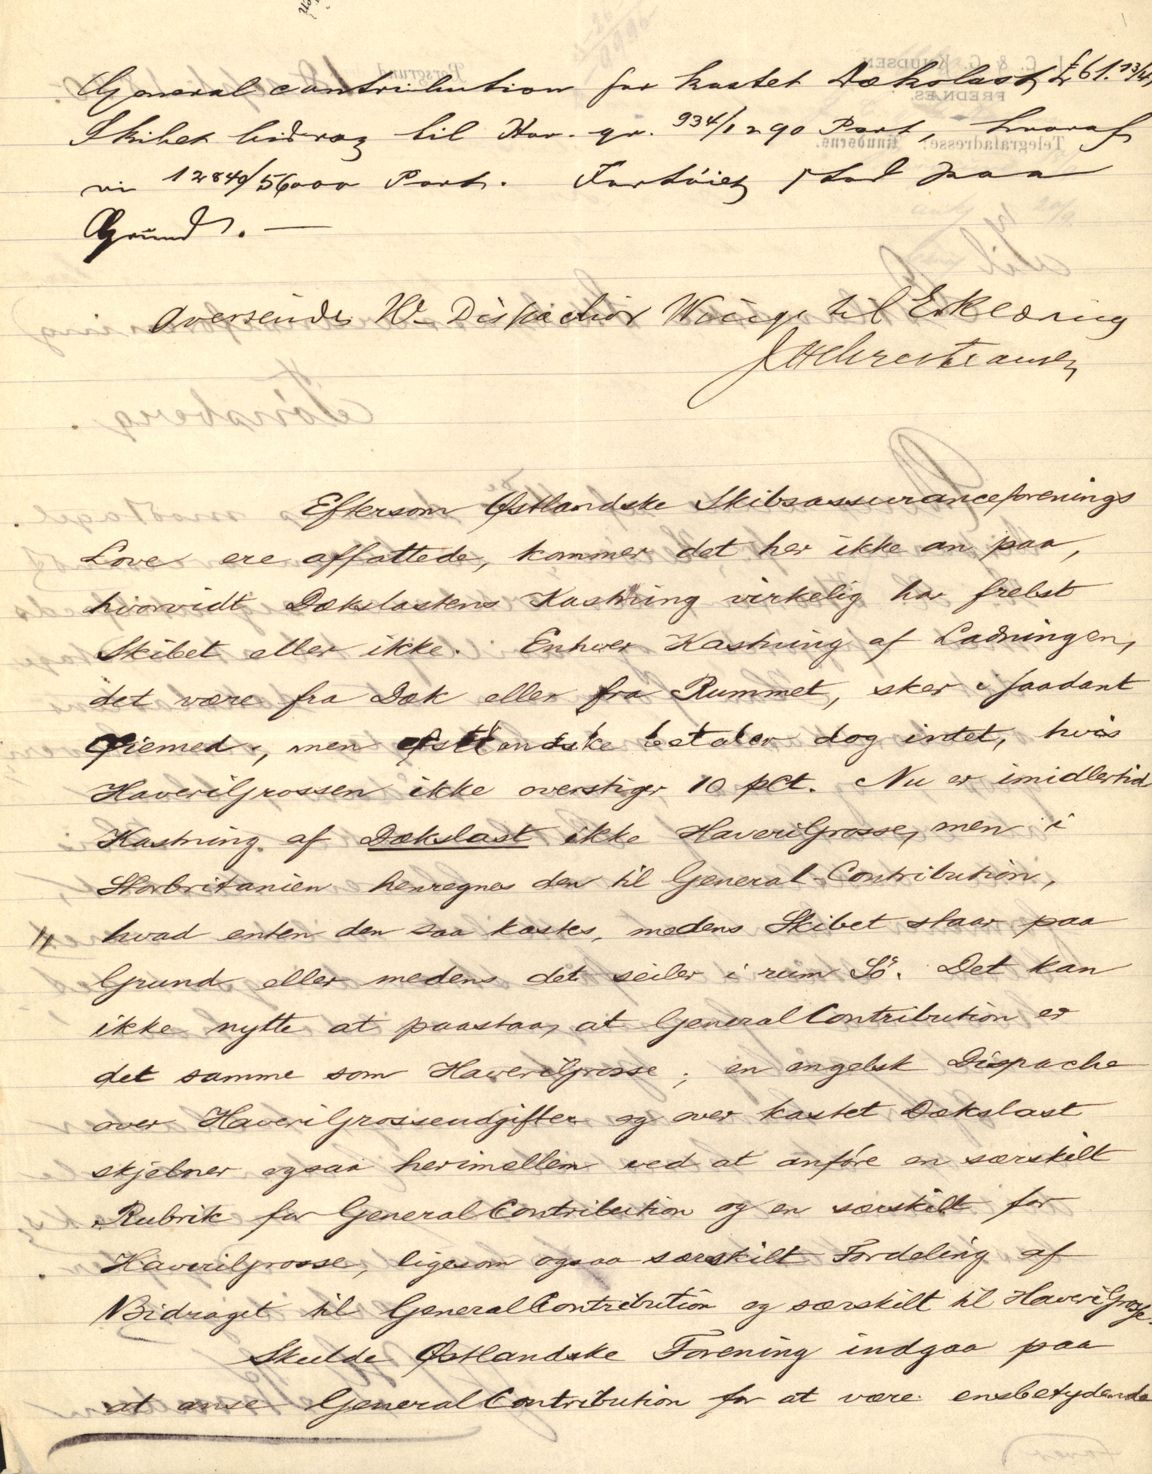 General contribution for kastet Dækslast £ 61.13/4,
Skibets bidrag til Hav. gr. 934/1290 Part, hvoraf
vi 12840/56000 Part. Fartöiet stod paa
Grund. —
Oversendes Hr. Dispachör Wiige til Erklæring
JHChristiansen
Eftersom Østlandske Skibsassuranceforenings
Love ere affattede, kommer det her ikke an paa,
hvorvidt Dækslastens Kastning virkelig har frelst
Skibet eller ikke. Enhver Kastning af Ladningen,
det være fra Dæk eller fra Rummet, sker i saadant
Øiemed, men Østlandske betaler dog intet, hvis
HaveriGrossen ikke overstiger 10 pCt. Nu er imidlertid
Kastning af Dækslast ikke HaveriGrosse, men i
Storbritanien henregnes den til General-Contribution,
hvad enten den saa kastes, medens Skibet staar paa
Grund eller medens det seiler i rum Sö. Det kan
ikke nytte at paastaa, at GeneralContribution er
det samme som HaveriGrosse; en engelsk Dispache
over HaveriGrosseudgifter og over kastet Dækslast
skjelner ogsaa herimellem ved at anføre en særskilt
Rubrik for GeneralContribution og en særskilt for
HaveriGrosse, ligesom ogsaa særskilt Fordeling af
Bidraget til GeneralContribution og særskilt til HaveriGrosse.
Skulde Østlandske Forening indgaa paa
at anse GeneralContribution for at være ensbetydende